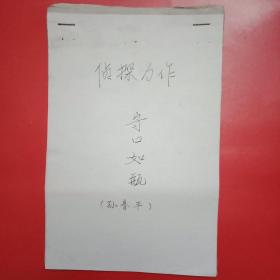 侦探力作
守口如瓶
(孙春平)